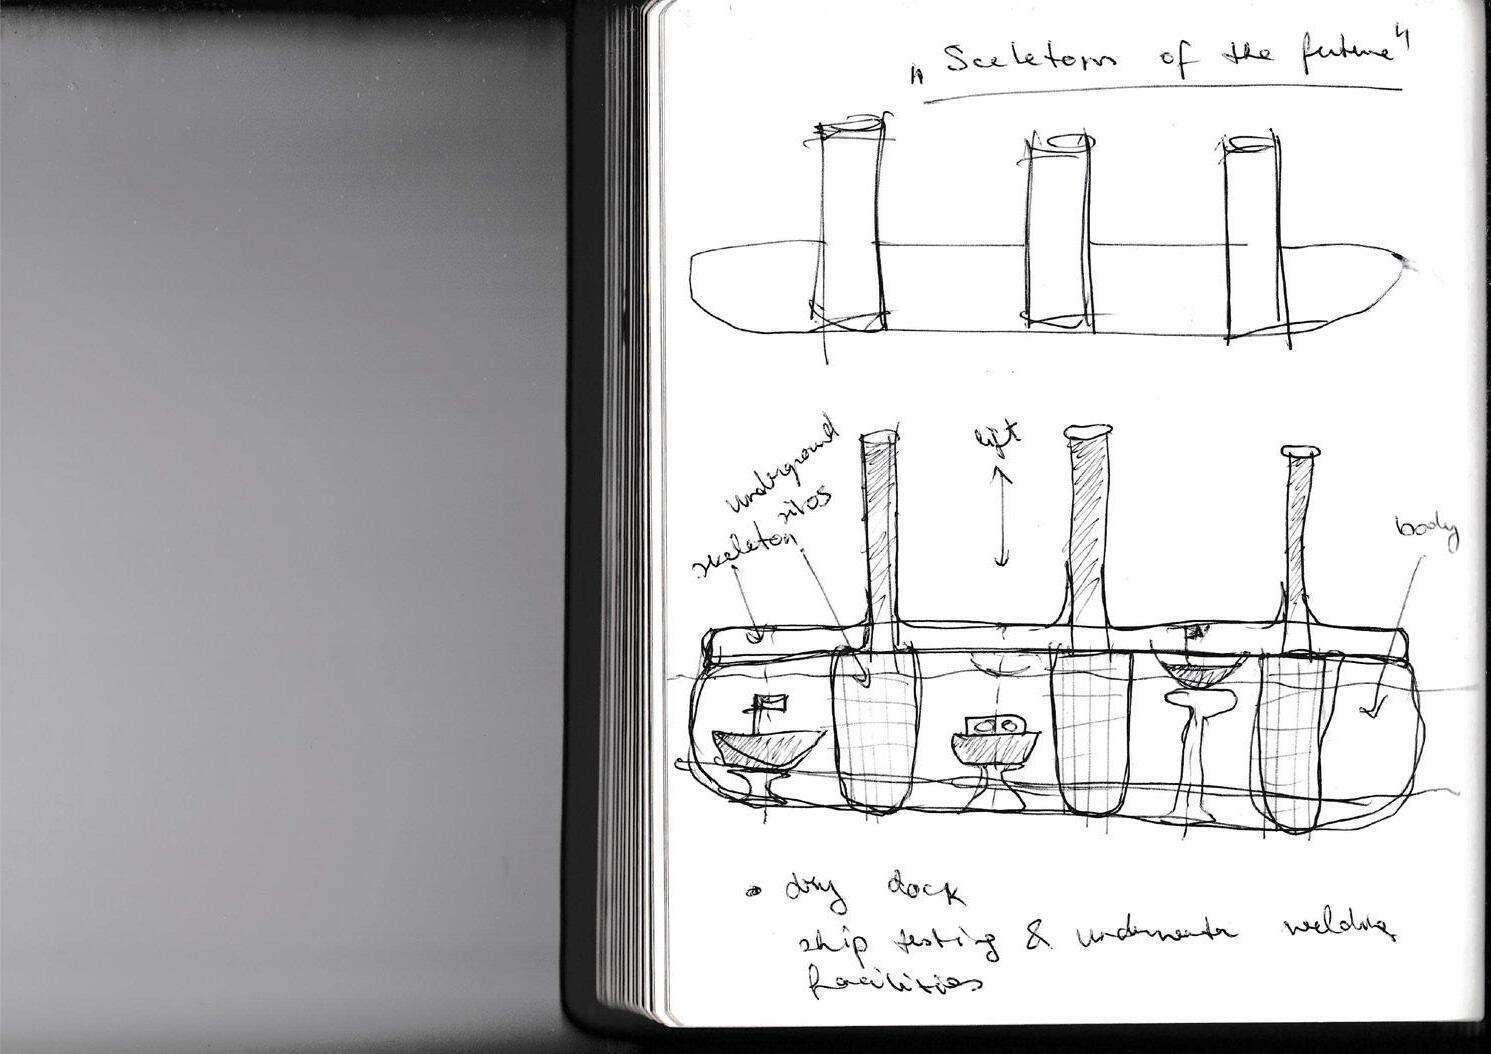 „Sceletons of the future"
underground
silos
lift
skeleton
body
• dry dock
ship testing & underwater welding
facilities